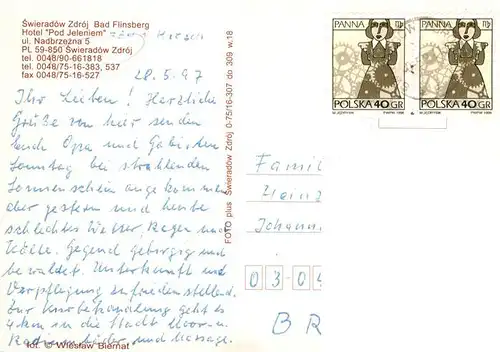 Świeradów Zdrój Bad Flinsberg
Hotel "Pod Jeleniem"
ul. Nadbrzeżna 5
PL 59-850 Świeradów Zdrój
tel. 0048/90-661818
tel. 0048/75-16-383, 537
fax 0048/75-16-527
28.5.97
Ihr Lieben! Herzliche
Grüße von hier senden
Euch Opa und Gabi. Am
Sonntag bei strahlendem
Sonnenschein angekommen
aber gestern und heute
schlechtes Wetter, Regen und
Kälte. Gegend gebirgig und
bewaldet. Unterkunft und
Verpflegung zufriedenstellend.
Zur Kurbehandlung geht es
4 km in die Stadt Moor- u.
Radiumbäder und Massage.
fot. © Wiesław Biernat
FOTO plus Świeradów Zdrój 0-75/16-307 do 309 w.18
PANNA
POLSKA 40 GR
PANNA
POLSKA 40 GR
Famil
Heinz
Johann
03-04
BR